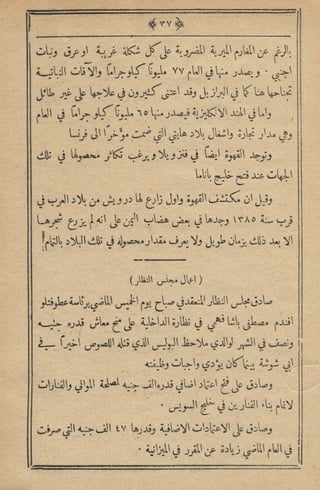 ﴿ ٣٧ ﴾
بالرغم عن المغارم الميرية المضروبة على كل شكلة غريبة او عرق ونبات
اجنبي . ويصدر منها في العام ٧٧ مليونًا كيلو جرامًا والآفات النباتيـة
تجتاحها هنا كما في البرازيل وقد اعتنى كثيرون في علاجها على غير طائل
واما في الهند الانكليزية فيصدر منها ٦٥ مليونًا كيلو جرامًا في العام
وهي مدار تجارة واشغال بلاد هايتي التي ضمت مؤخرًا الى فرنسا
وتوجد القهوة ايضًا في فنزويلا ويرغب تكاثر محصولها في تلك
الجهات عند فتح خليج باناما
وقيل ان مكتشف القهوة واول زارع لها درويش من بلاد العرب في
قرب سنة ١٣٨٥ وجدها في بعض هضاب اليمن على انه لم يزرع شجرها
الا بعد ذلك بزمان طويل ولا يعرف مقدار محصوله في تلك البلاد بالتمام
( اعمال مجلس النظار )
صادق مجلس النظار المنعقد في صباح يوم الخميس الماضي برئاسة عطوفتلو
افندم مصطفى باشا فهمي في نظارة الداخلية على منح معاش قدره جنيـه
ونصف في الشهر لوالدي ملاحظ البوليس الذي قتله اللصوص اخيرًا في
ابي شوشة بينما كان يؤدي واجبات وظيفته
وصادق على فتح اعتماد اضافي قدره الف جنيه لمصلحة المواني والفنارات
لاتمام بناء الفنارين في خليج السويس .
وصادق على الاعتمادات الاضافية وقدرها ٤٧ الف جنيه التي صرفت
في العام الماضي زيادة عن المقرر في الميزانية .